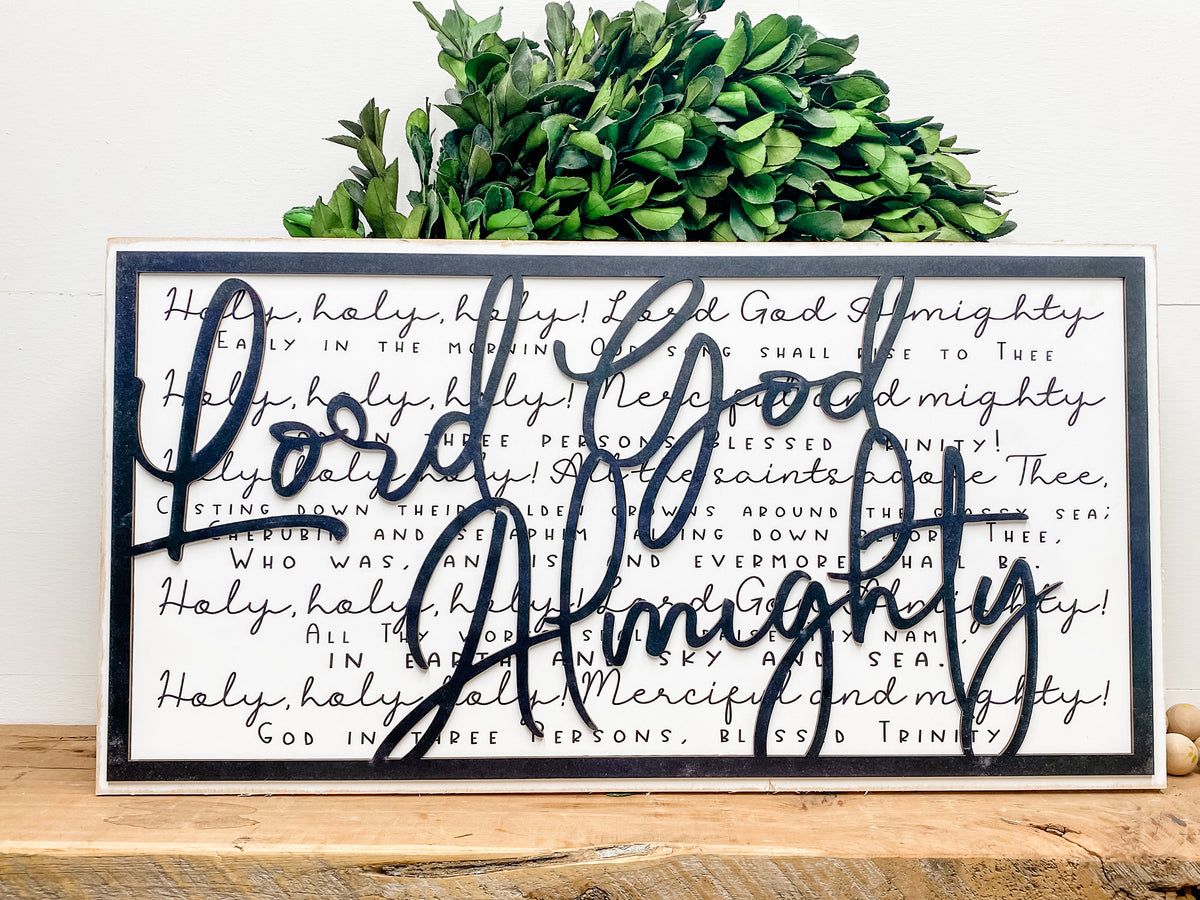 Lord God
Almighty
Holy, holy, holy! Lord God Almighty
EARLY IN THE MORNING OUR SONG SHALL RISE TO THEE
Holy, holy, holy! Merciful and mighty
GOD IN THREE PERSONS BLESSED TRINITY!
Holy, holy, holy! All the saints adore Thee,
CASTING DOWN THEIR GOLDEN CROWNS AROUND THE GLASSY SEA;
CHERUBIM AND SERAPHIM FALLING DOWN BEFORE THEE,
WHO WAS, AND IS, AND EVERMORE SHALL BE.
Holy, holy, holy! Lord God Almighty!
ALL THY WORKS SHALL PRAISE THY NAME,
IN EARTH AND SKY AND SEA.
Holy, holy, holy! Merciful and mighty!
GOD IN THREE PERSONS, BLESSED TRINITY